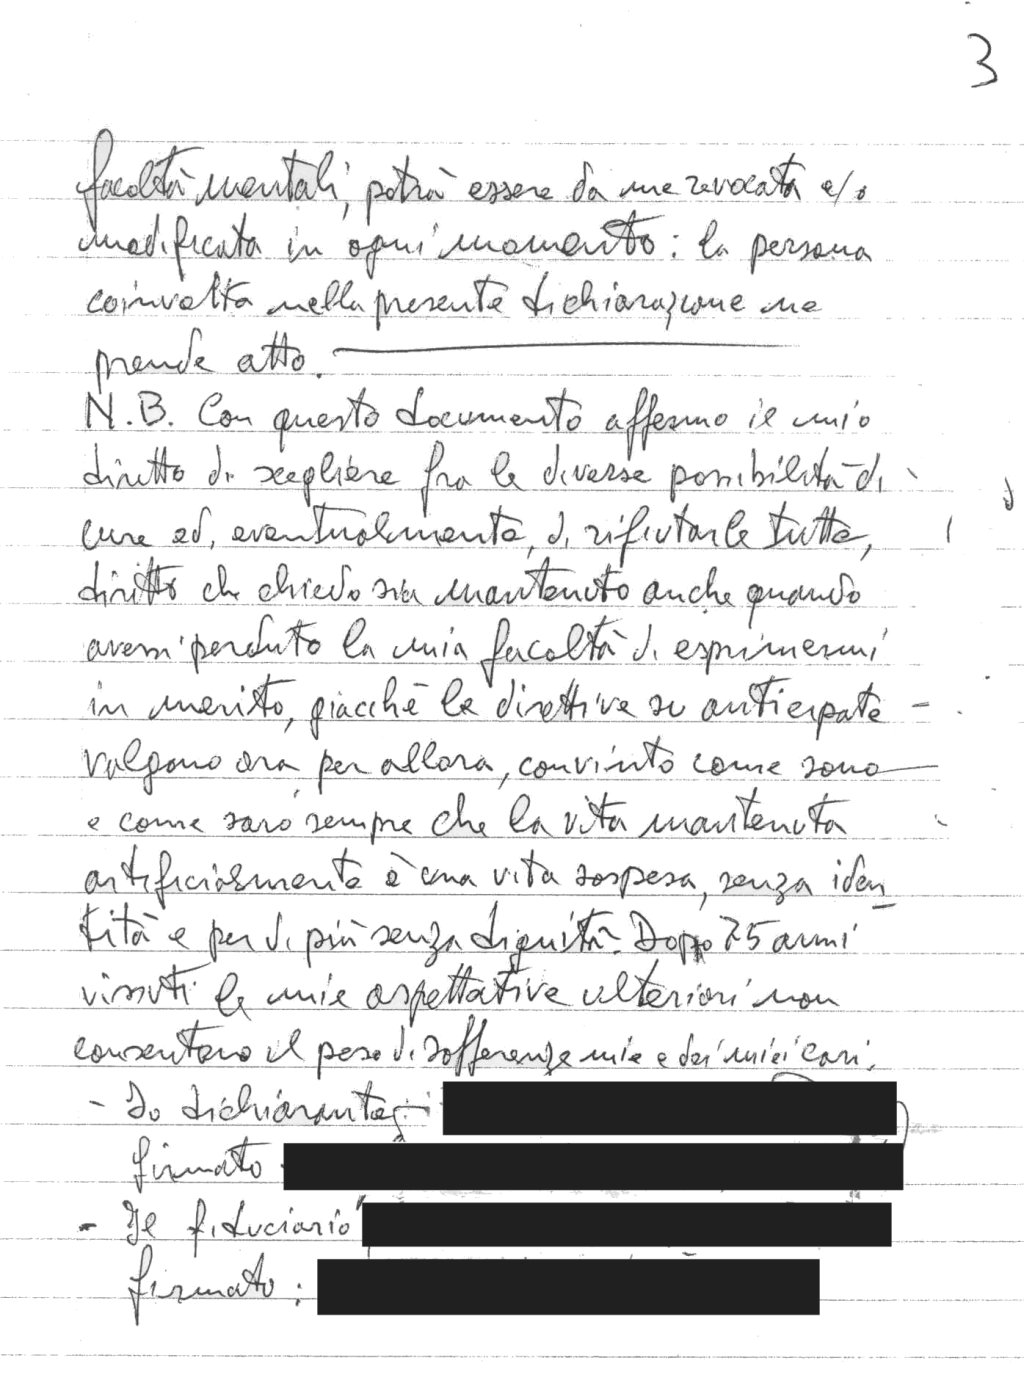 3
facoltà mentali, potrà essere da me revocata e/o
modificata in ogni momento: la persona
coinvolta nella presente dichiarazione ne
prende atto.
N.B. Con questo documento affermo il mio
diritto di scegliere fra le diverse possibilità di
cure ed, eventualmente, di rifiutarle tutte,
diritto che chiedo sia mantenuto anche quando
avessi perduto la mia facoltà di esprimermi
in merito, giacchè le direttive su anticipate
valgono ora per allora, convinto come sono
e come sarò sempre che la vita mantenuta
artificialmente è una vita sospesa, senza iden
tità e per di più senza dignità. Dopo 75 anni
vissuti le mie aspettative ulteriori non
consentono il peso di sofferenze mie e dei miei cari.
- Io dichiarante
firmato
- Il fiduciario
firmato: